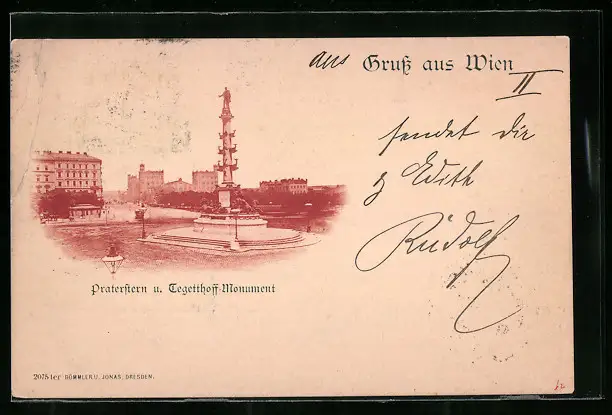 aus Gruß aus Wien II
sendet Dir
Edith
Rudolf
Praterstern u. Tegetthoff-Monument
2075 ter DÖMMLER U. JONAS, DRESDEN.